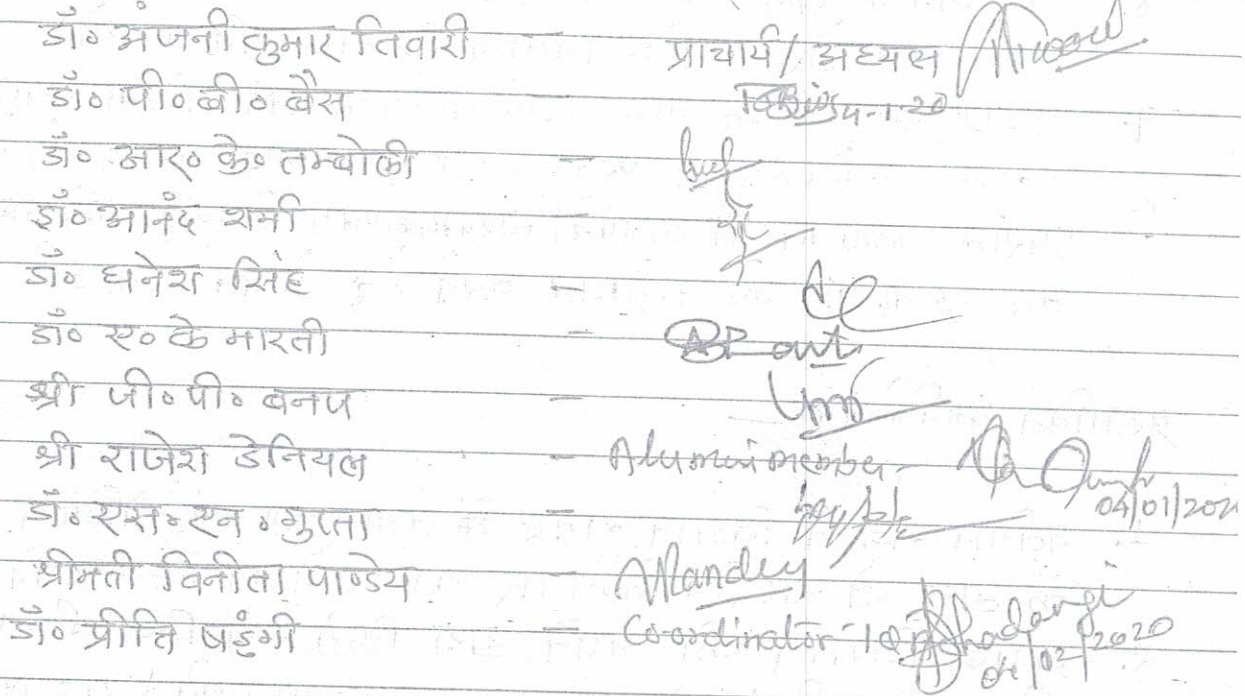 डॉ॰ अंजनी कुमार तिवारी - प्राचार्य / अध्यक्ष
डॉ॰ पी॰ वी॰ बैस - 4-1-20
डॉ॰ आर॰ के॰ तम्बोली -
डॉ॰ आनंद शर्मा -
डॉ॰ धनेश सिंह -
डॉ॰ ए॰ के भारती -
श्री जी॰ पी॰ बनज -
श्री राजेश डेनियल - Alumni member 04/01/202
डॉ॰ एस॰ एन॰ गुप्ता -
श्रीमती विनीता पाण्डेय - Pandey
डॉ॰ प्रीति षडंगी - Coordinator Shadangi
04/02/2020